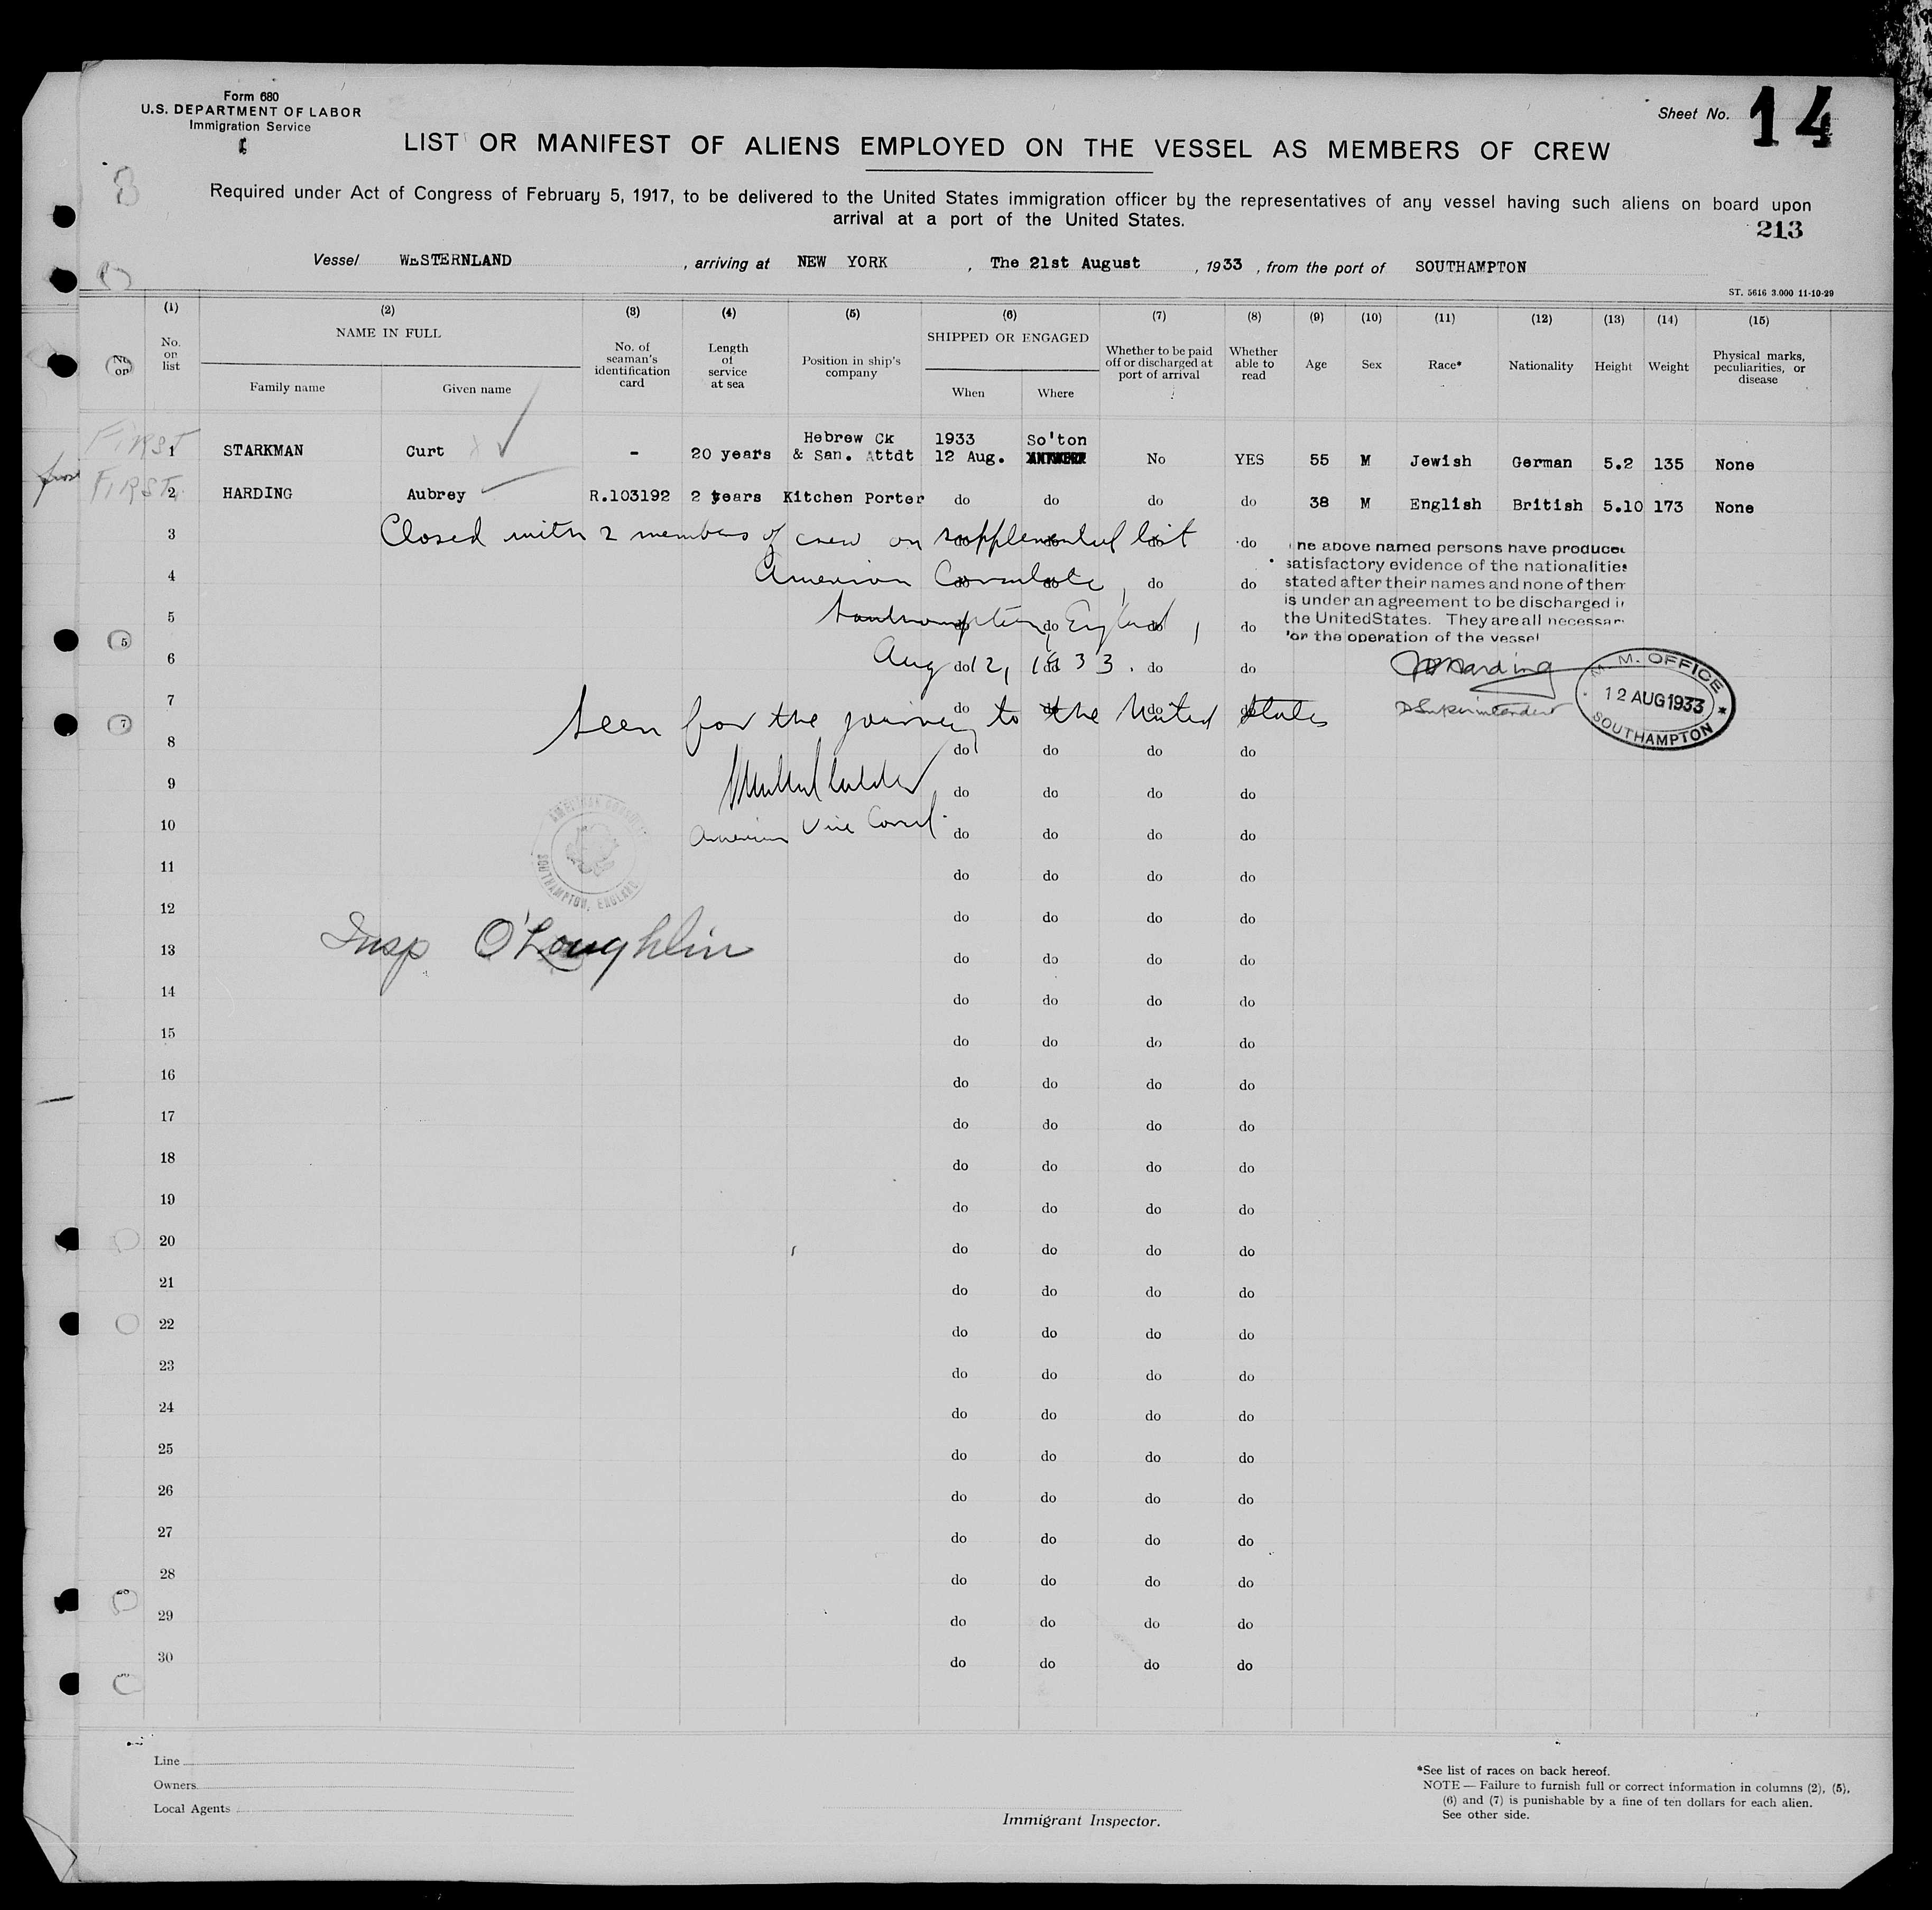 Form 680
U.S. DEPARTMENT OF LABOR
Immigration Service
Sheet No. 14
LIST OR MANIFEST OF ALIENS EMPLOYED ON THE VESSEL AS MEMBERS OF CREW
Required under Act of Congress of February 5, 1917, to be delivered to the United States immigration officer by the representatives of any vessel having such aliens on board upon
arrival at a port of the United States.
213
Vessel WESTERNLAND , arriving at NEW YORK , The 21st August , 1933 , from the port of SOUTHAMPTON
ST. 5616 3.000 11-10-29
(1) (2) (3) (4) (5) (6) (7) (8) (9) (10) (11) (12) (13) (14) (15)
No. on list NAME IN FULL Family name Given name No. of seaman's identification card Length of service at sea Position in ship's company SHIPPED OR ENGAGED When Where Whether to be paid off or discharged at port of arrival Whether able to read Age Sex Race* Nationality Height Weight Physical marks, peculiarities, or disease
FIRST 1 STARKMAN Curt - 20 years Hebrew Ck & San. Attdt 1933 12 Aug. So'ton ANTWERP No YES 55 M Jewish German 5.2 135 None
FIRST 2 HARDING Aubrey R.103192 2 years Kitchen Porter do do do do 38 M English British 5.10 173 None
3 Closed with 2 members of crew on supplemental list do do do do
4 American Consulate, do do do do
5 Southampton, England, do do do do
6 Aug 12, 1933. do do do do
he above named persons have produced
satisfactory evidence of the nationalities
stated after their names and none of them
is under an agreement to be discharged in
the United States. They are all necessary
for the operation of the vessel
Harding
D Superintendent
M. M. OFFICE
12 AUG 1933
SOUTHAMPTON
7 Seen for the journey to the United States do do do do
8 do do do do
9 do do do do
10 American Vice Consul. do do do do
AMERICAN CONSULATE
SOUTHAMPTON, ENGLAND
11 do do do do
12 do do do do
13 Insp O'Loughlin do do do do
14 do do do do
15 do do do do
16 do do do do
17 do do do do
18 do do do do
19 do do do do
20 do do do do
21 do do do do
22 do do do do
23 do do do do
24 do do do do
25 do do do do
26 do do do do
27 do do do do
28 do do do do
29 do do do do
30 do do do do
Line
Owners
Local Agents
Immigrant Inspector.
*See list of races on back hereof.
NOTE — Failure to furnish full or correct information in columns (2), (5),
(6) and (7) is punishable by a fine of ten dollars for each alien.
See other side.